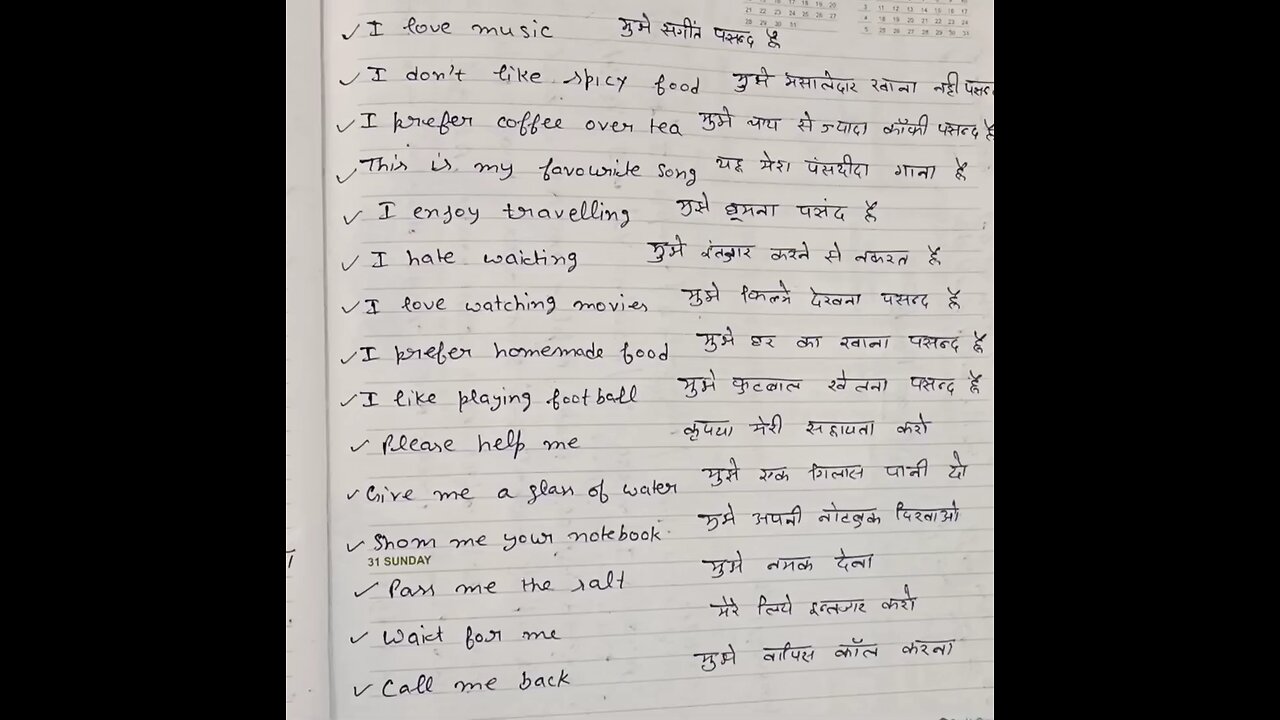 ✓ I love music मुझे संगीत पसन्द है
✓ I don't like spicy food मुझे मसालेदार खाना नही पसन्द
✓ I prefer coffee over tea मुझे चाय से ज्यादा कॉफी पसन्द है
✓ This is my favourite song यह मेरा पंसदीदा गाना है
✓ I enjoy travelling मुझे घूमना पसंद है
✓ I hate waiting मुझे इंतजार करने से नफरत है
✓ I love watching movies मुझे फिल्मे देखना पसन्द है
✓ I prefer homemade food मुझे घर का खाना पसन्द है
✓ I like playing football मुझे फुटबाल खेलना पसन्द है
✓ Please help me कृपया मेरी सहायता करो
✓ Give me a glass of water मुझे एक गिलास पानी दो
✓ Show me your notebook मुझे अपनी नोटबुक दिखाओ
31 SUNDAY
✓ Pass me the salt मुझे नमक देना
✓ Wait for me मेरे लिये इन्तजार करो
✓ Call me back मुझे वापिस कॉल करना